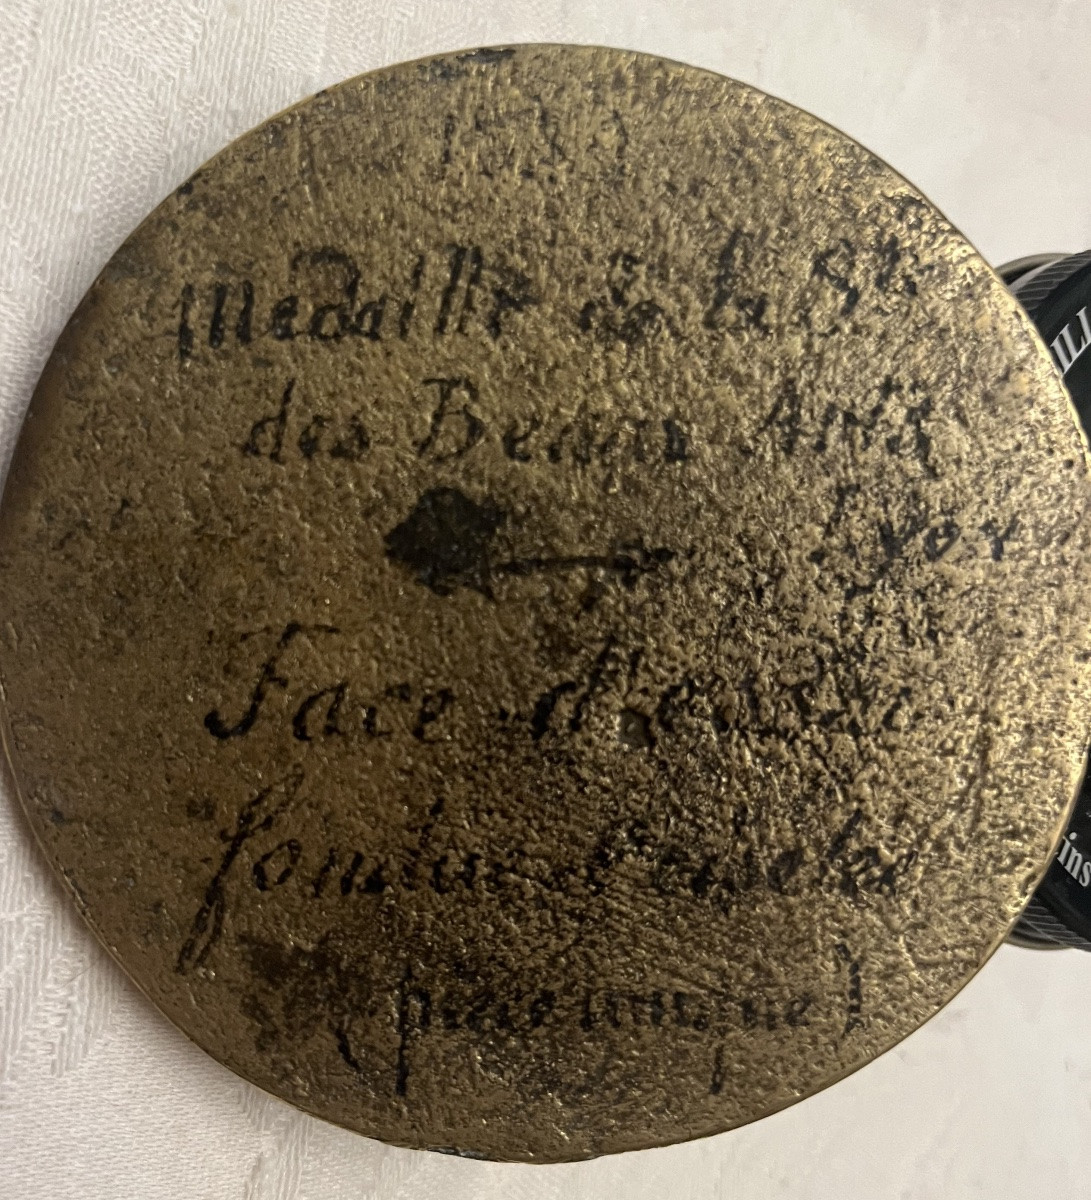 Medaille de la Sté
des Beaux Arts
Lyon
Face d'essai
fondue
(piece unique)
ILL
ins